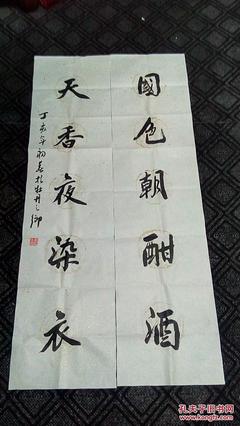 國色朝酣酒
天香夜染衣
丁亥年初春於牡丹之鄉
孔夫子旧书网